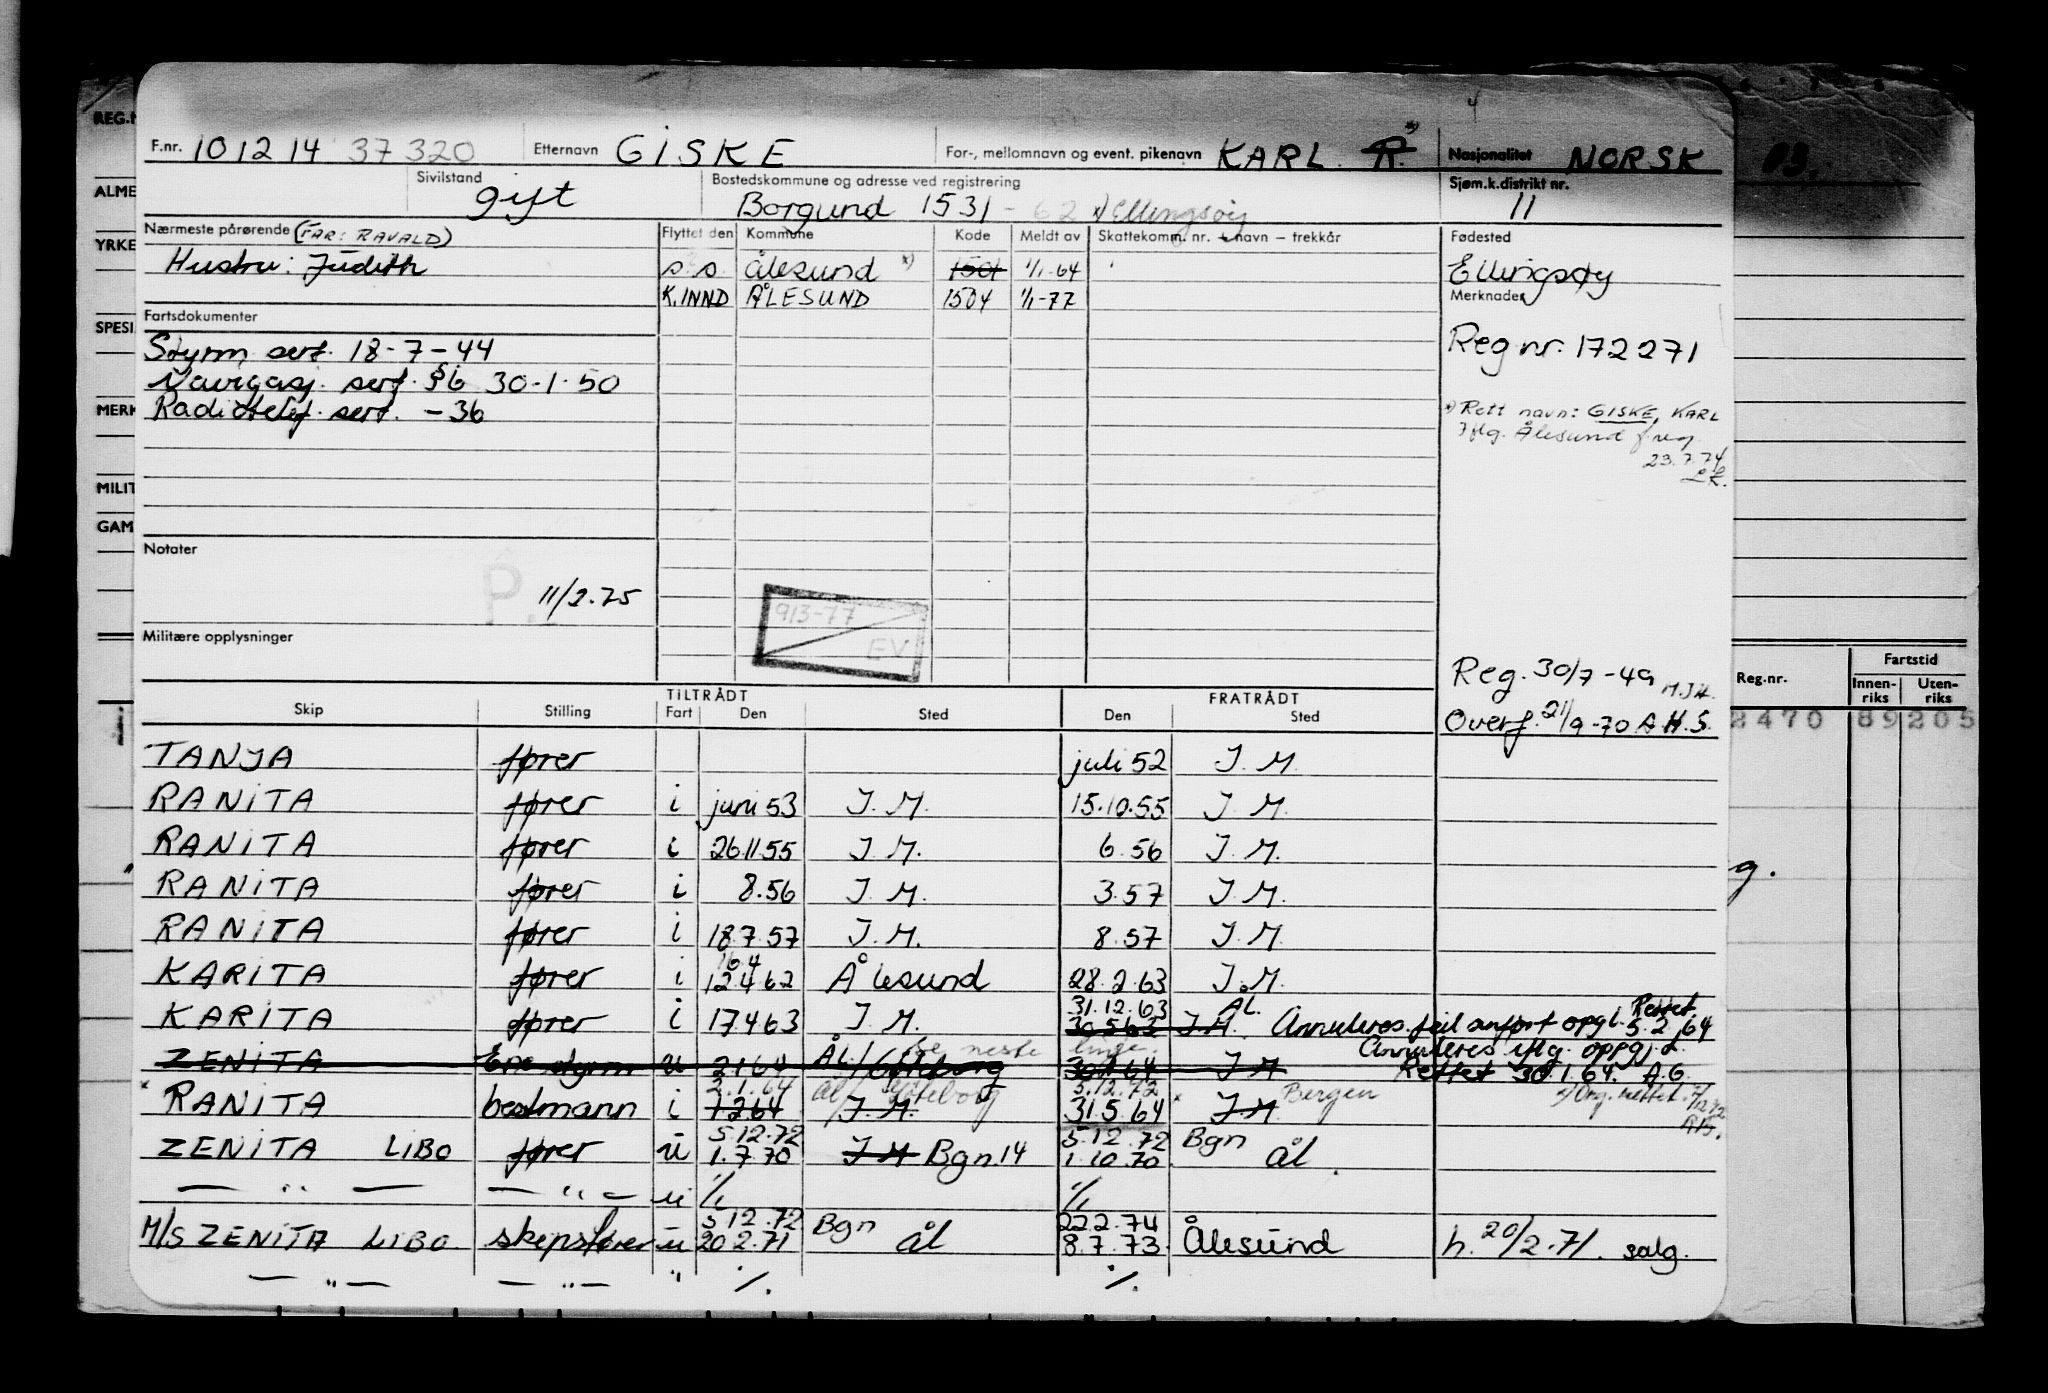 REG.N
F.nr. 101214 37320 Etternavn GISKE For-, mellomnavn og event. pikenavn KARL R. *) Nasjonalitet NORSK 03.
ALME Sivilstand gift Bostedskommune og adresse ved registrering Borgund 1531 - 62 x) Ellingsøy Sjøm.k.distrikt nr. 11
YRKE Nærmeste pårørende (FAR: RAVALD) Flyttet den Kommune Kode Meldt av Skattekomm. nr. + navn - trekkår Fødested
Hustru: Judith s.s. Ålesund *) 1501 1/1-64 Ellingsøy
K.INND ÅLESUND 1504 1/1-77 Merknader
SPESI Fartsdokumenter
Styrm. sert. 18-7-44 Reg nr. 172271
Navigasj. sert. §6 30-1-50
MERK Radiotelef. sert. -36 *) Rett navn: GISKE, KARL
Iflg. Ålesund f.reg.
23.7.74
MILIT
GAM
Notater
P. 11/2.75 913-77
EV
Militære opplysninger
Reg. 30/7-49 Reg.nr. Fartstid
TILTRÅDT FRATRÅDT Innen-riks Uten-riks
Skip Stilling Fart Den Sted Den Sted Overf. 21/9-70 A.H.S. 2470 89205
TANJA fører juli 52 J.M.
RANITA fører i juni 53 J.M. 15.10.55 J.M.
RANITA fører i 26.11.55 J.M. 6.56 J.M.
RANITA fører i 8.56 J.M. 3.57 J.M. g.
RANITA fører i 18.7.57 J.M. 8.57 J.M.
KARITA fører i 12.4.62 Ålesund 28.2.63 J.M.
31.12.63 ÅL. Rettet
KARITA fører i 17.4.63 J.M. 30.5.63 J.M. Annuleres feil anført oppg. 5.2.64
Se neste linje. Annuleres iflg. oppg.
ZENITA Ene styrm u 2.1.64 ÅL/Göteborg 30.1.64 J.M Rettet 30.1.64. A.G.
2.1.64 Ål/Göteborg 5.12.72 Bergen
RANITA bestmann i 1.2.64 J.M. 31.5.64 J.M
5.12.72 5.12.72 Bgn
ZENITA LIBO fører u 1.7.70 J.M Bgn.14 1.10.70 Ål.
— " — — " — u % %
5.12.72 Bgn 22.2.74
M/S ZENITA LIBO skipsfører u 20.2.71 Ål 8.7.73 Ålesund h. 20/2.71. salg.
— " — — " — " % %